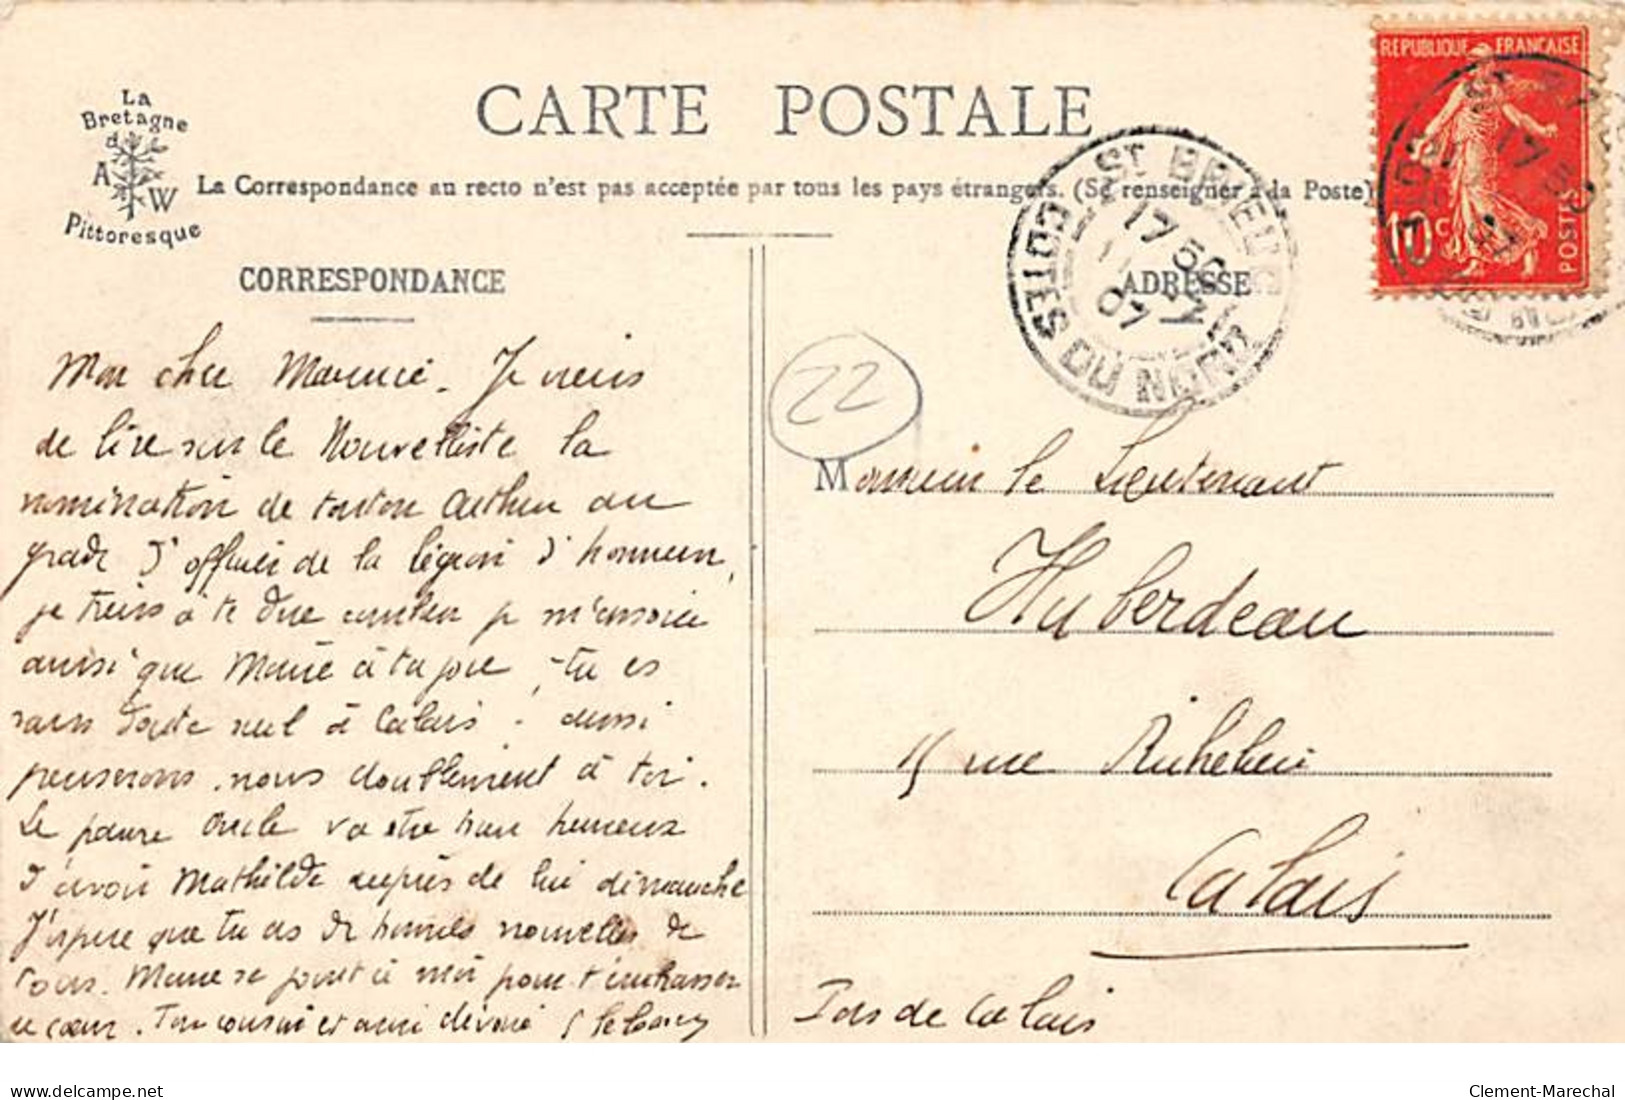 La
Bretagne
d
A W
Pittoresque
CARTE POSTALE
La Correspondance au recto n'est pas acceptée par tous les pays étrangers. (Se renseigner à la Poste)
REPUBLIQUE FRANÇAISE
10c
POSTES
ST BRIEUC
17 30
07
COTES DU NORD
CORRESPONDANCE
ADRESSE
22
Mon cher Maurice. Je viens
de lire sur le Nouvelliste la
nomination de tonton Arthur au
grade d'officier de la légion d'honneur,
je tiens à te dire combien je m'associe
ainsi que Marie à ta joie, tu es
sans doute seul à Calais. aussi
penserons nous doublement à toi.
Le pauvre Oncle va être bien heureux
d'avoir Mathilde auprès de lui dimanche
J'espère que tu as de bonnes nouvelles de
tous. Marie se joint à moi pour t'embrasser
de cœur. Ton cousin et ami dévoué
Monsieur le Lieutenant
Huberdeau
15 rue Richelieu
Calais
Pas de Calais
www.delcampe.net
Clement-Marechal